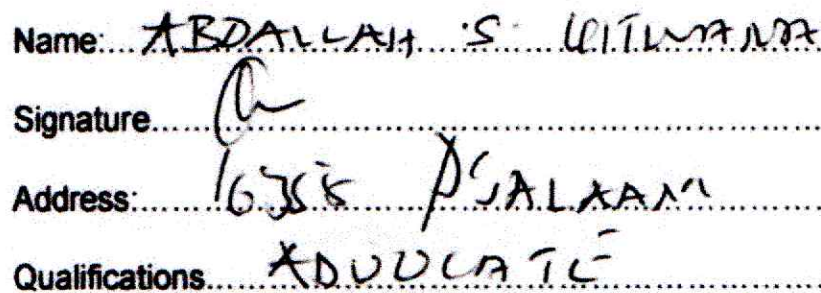 Name: ABDALLAH S. KITWANA
Signature
Address: D'SALAAM
Qualifications ADVOCATE